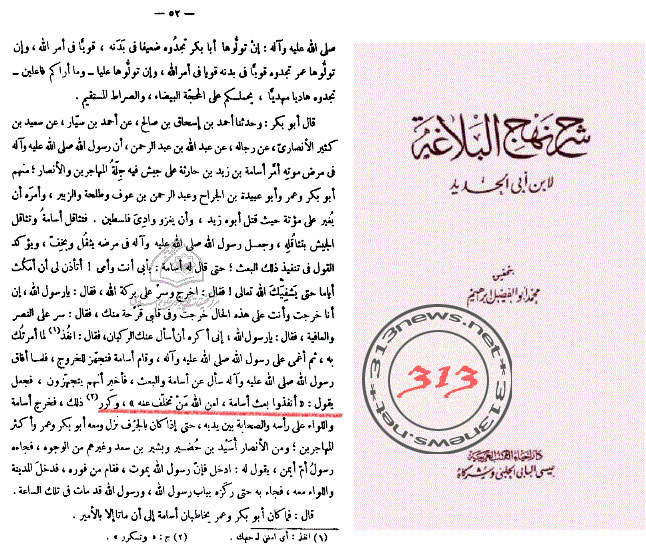 — ٥٢ —
صلى الله عليه وآله : إنْ تولُّوها أبا بكر تجدُوه ضعيفا فى بَدَنه ، قويًّا فى أمر الله ، وإن
تولُّوها عمر تجدوه قويًّا فى بدنه قويا فى أمرالله، وإن تولُّوها عليا ــ وما أراكم فاعلين ــ
تجدوه هاديا مهديًّا ، يحملكم على المحجّة البيضاء ، والصراط المستقيم .
قال أبو بكر : وحدثنا أحمد بن إسحاق بن صالح، عن أحمد بن سيّار، عن سعيد بن
كثير الأنصارىّ، عن رجاله ، عن عبد الله بن عبد الرحمن، أن رسول الله صلى الله عليه وآله
فى مرض موته أمَّر أسامة بن زيد بن حارثة على جيش فيه جِلّة المهاجرين والأنصار ؛ منهم
أبو بكر وعمر وأبو عبيدة بن الجراح وعبد الرحمن بن عوف وطلحة والزبير ، وأمره أن
يُغير على مؤتة حيث قتل أبوه زيد ، وأن يغزو وادىَ فلسطين . فتثاقل أسامة وتثاقل
الجيش بتثاقُله ، وجعل رسول الله صلى الله عليه وآله فى مرضه يثقُل ويخِفّ، ويؤكد
القول فى تنفيذ ذلك البعث ؛ حتى قال له أسامة : بأبى أنت وأمى ! أتأذن لى أن أمكث
أياما حتى يشفيَك الله تعالى ! فقال : اخرج وسرْ على بركة الله ، فقال : يارسول الله، إن
أنا خرجت وأنت على هذه الحال خرجت وفى قلبى قرحة منك ، فقال : سر على النصر
والعافية ، فقال : يارسول الله ، إنى أكره أن أسأل عنك الركبان، فقال : انفُذ(١) لما أمرتك
به ، ثم أغمى على رسول الله صلى الله عليه وآله ، وقام أسامة فتجهّز للخروج ، فلما أفاق
رسول الله صلى الله عليه وآله سأل عن أسامة والبعث ، فأُخبر أنهم يتجهّزون ، فجعل
يقول : « أنفذوا بعث أسامة ، لعن الله مَنْ تخلّف عنه » ، وكرر(٢) ذلك ، فخرج أسامة
واللواء على رأسه والصحابة بين يديه ، حتى إذا كان بالجُرْف نزل ومعه أبو بكر وعمر وأكثر
المهاجرين ؛ ومن الأنصار أُسَيد بن حُضَير وبشير بن سعد وغيرهم من الوجوه ، فجاءه
رسولُ أمّ أيمن ، يقول له : ادخل فإنّ رسول الله يموت ، فقام من فوره ، فدخل المدينة
واللواء معه ، فجاء به حتى ركَزه بباب رسول الله ، ورسول الله قد مات فى تلك الساعة .
قال : فما كان أبو بكر وعمر يخاطبان أسامة إلى أن ماتا إلا بالأمير .
(١) انفذ : أى امض لوجهك . (٢) ج : « وتكرر » .
شرح نهج البلاغة
لابن أبى الحديد
بتحقيق
محمد أبو الفضل إبراهيم
313news.net*313news.net*
313
دار إحياء الكتب العربية
عيسى البابى الحلبى وشركاه